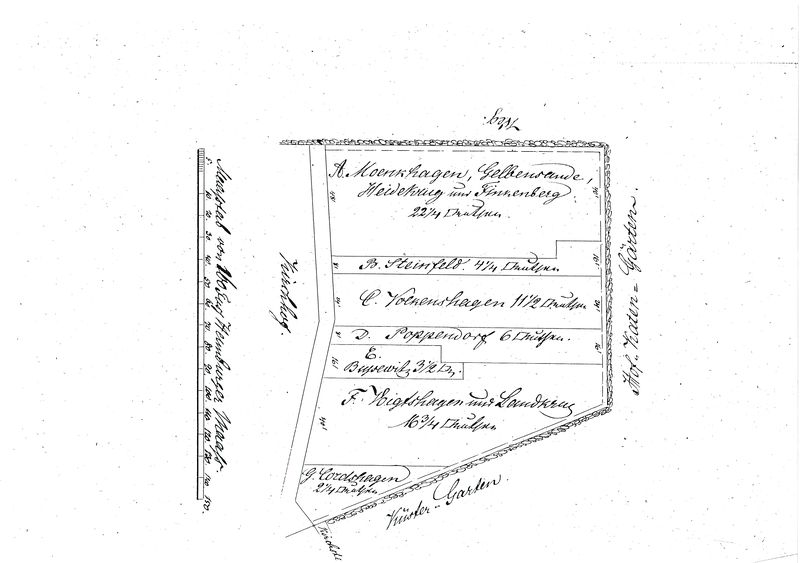 Weg.
A. Moenkhagen, Gelbensande,
Heidekrug und Finkenberg
22 1/4 □ruthen.
B. Steinfeld. 4 1/4 □ruthen
C. Volkenshagen 11 1/2 □ruthen
D. Poppendorf 6 □ruthen.
E.
Bussewitz 3 1/2 □r.
F. Vogtshagen und Landkrug
16 3/4 □ruthen
G. Cordshagen
2 1/4 □ruthen
Kirchhof.
Hof-Katen-Gärten.
Küster-Garten.
Maasstab von Hamburger Maass.
5. 10 20 30 40 50 60 70 80 90 100 110 120 130 140 150.